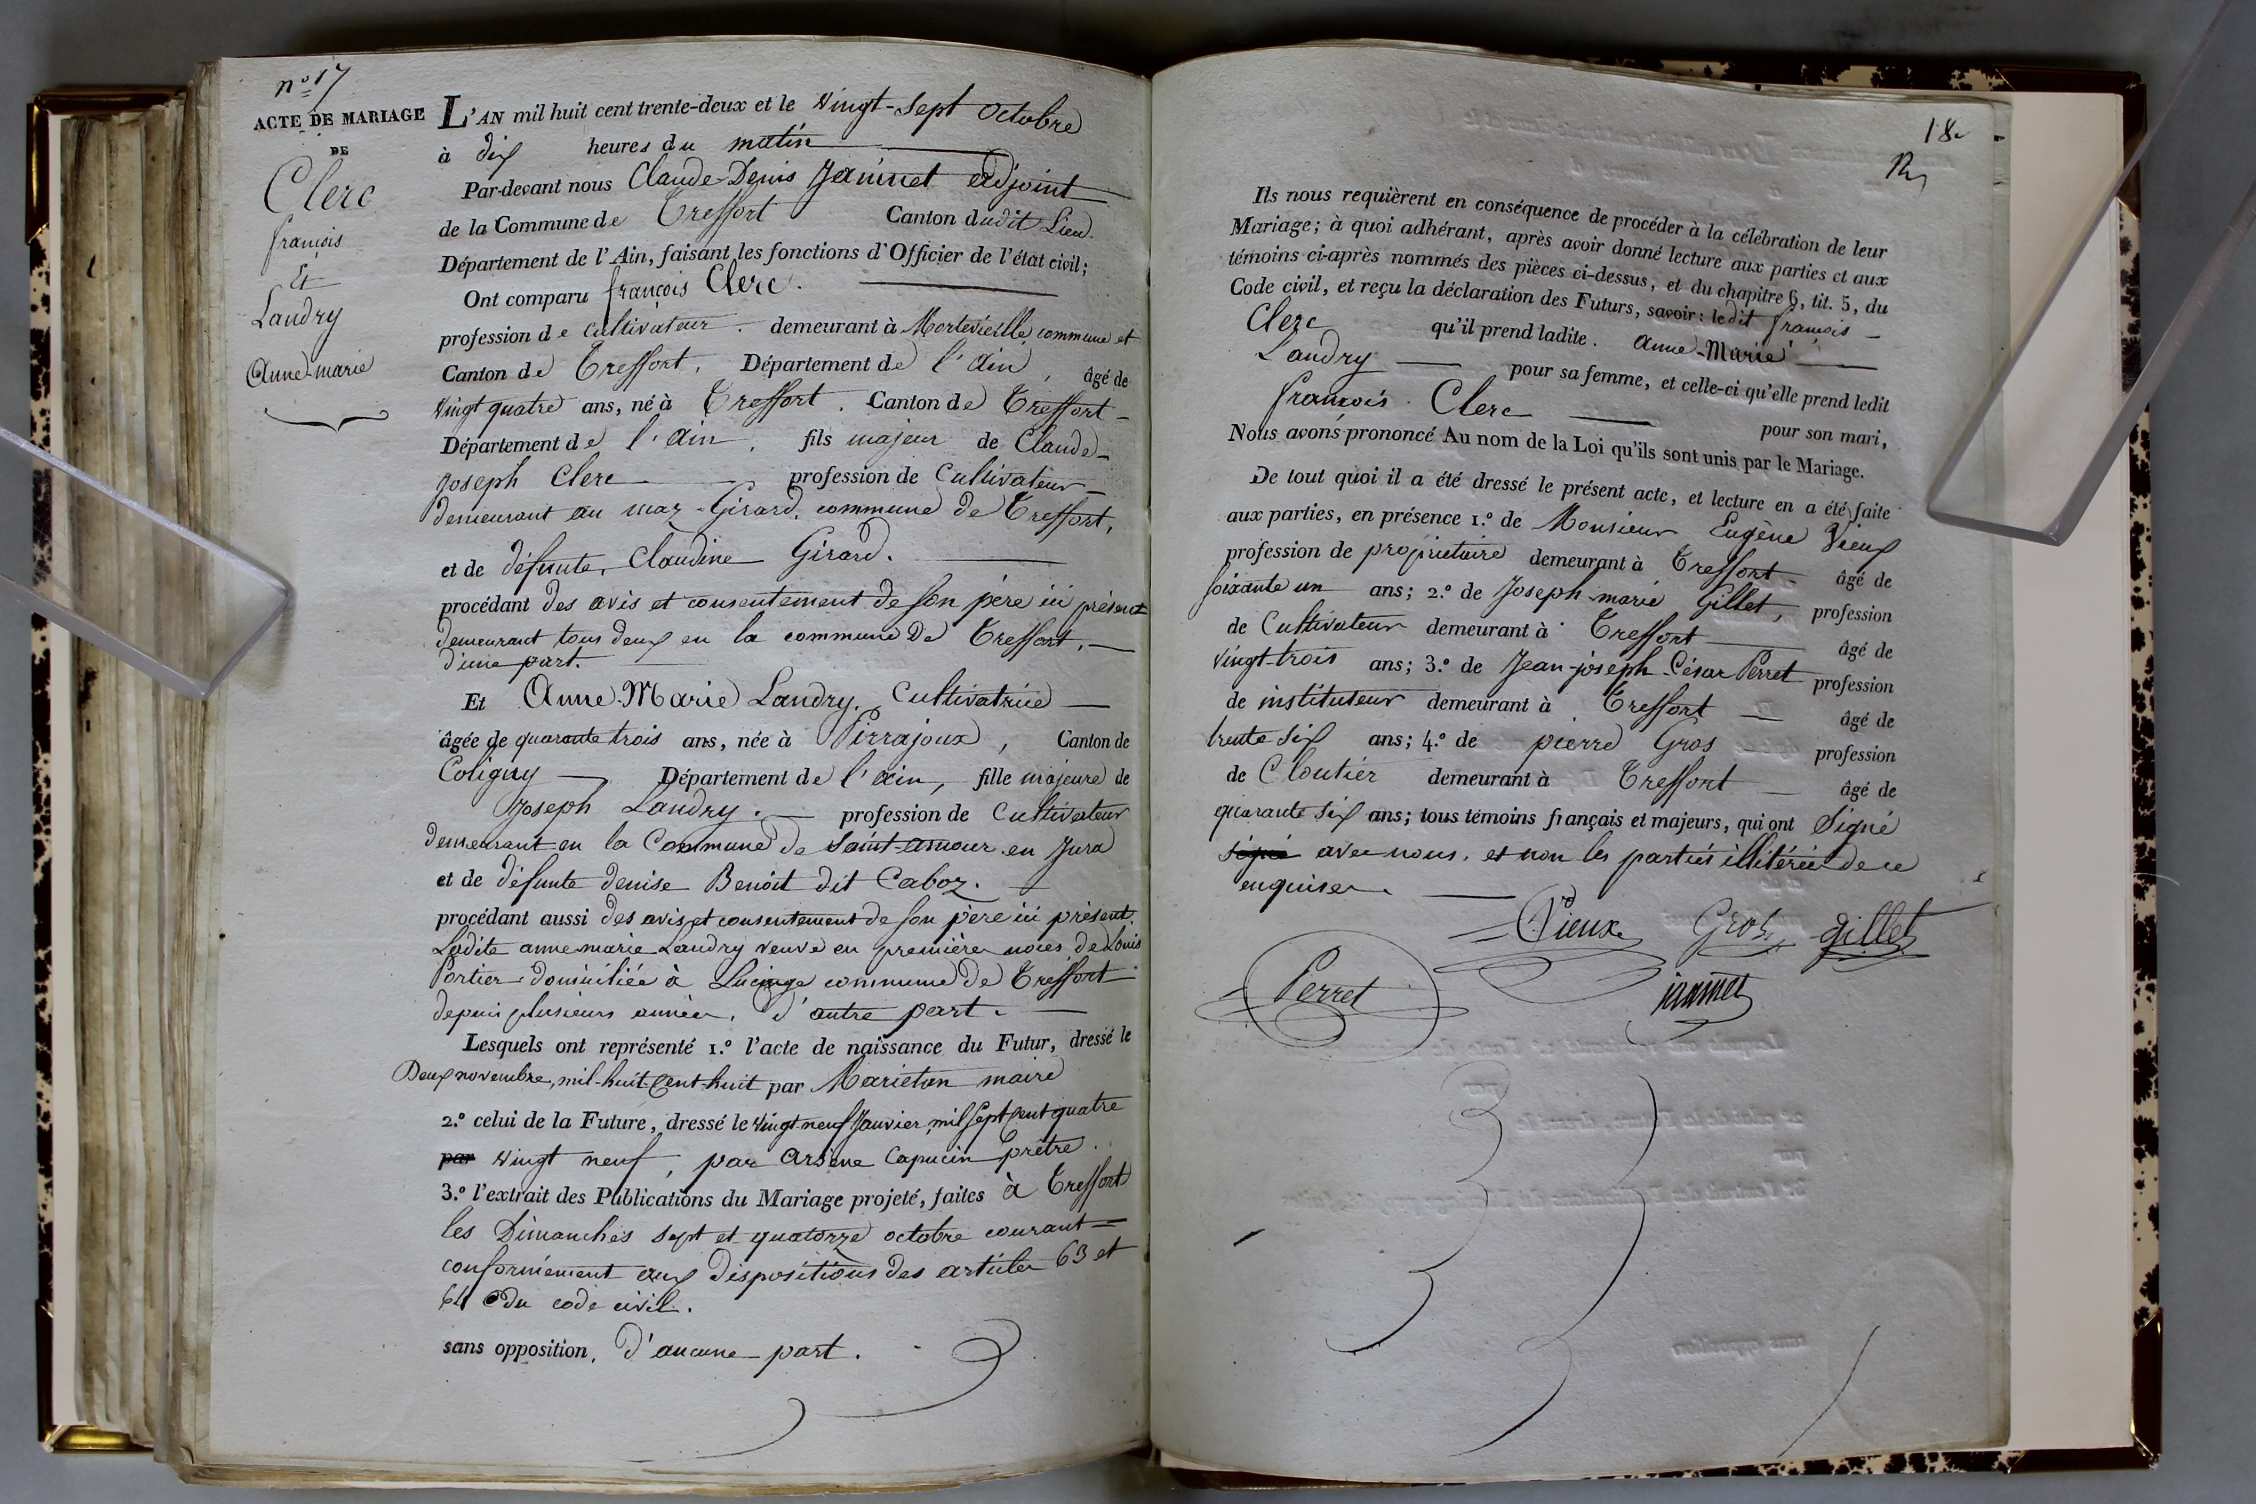 n.º 17
ACTE DE MARIAGE
DE
Clerc
françois
Et
Landry
Anne-marie
L'AN mil huit cent trente-deux et le vingt-sept octobre
à dix heures du matin
Par-devant nous Claude-Denis Janinet adjoint
de la Commune de Treffort Canton dudit Lieu.
Département de l'Ain, faisant les fonctions d'Officier de l'état civil;
Ont comparu françois Clerc.
profession de cultivateur. demeurant à Mortevieille, commune et
Canton de Treffort, Département de l'ain, âgé de
vingt quatre ans, né à Treffort. Canton de Treffort
Département de l'ain, fils majeur de Claude-
joseph Clerc profession de Cultivateur
demeurant au maz-Girard, commune de Treffort,
et de défunte, Claudine Girard.
procédant des avis et consentement de son père ici présent
demeurant tous deux en la commune de Treffort.
d'une part.
Et Anne-Marie Landry, Cultivatrice
âgée de quarante trois ans, née à Pirrajoux, Canton de
Coligny Département de l'ain, fille majeure de
Joseph Landry. profession de Cultivateur
demeurant en la Commune de Saint-amour en Jura
et de défunte denise Benoit dit Caboz.
procédant aussi des avis et consentement de son père ici présent.
Ladite anne marie Landry veuve en premières noces de Louis
Portier domiciliée à Lucinge commune de Treffort
depuis plusieurs années. d'autre part.
Lesquels ont représenté 1.º l'acte de naissance du Futur, dressé le
Deux novembre, mil-huit-Cent-huit par Marietan maire
2.º celui de la Future, dressé le vingt neuf Janvier, mil sept cent quatre
par vingt neuf, par arsene Capucin prêtre.
3.º l'extrait des Publications du Mariage projeté, faites à Treffort
les Dimanches sept et quatorze octobre courant
conformément aux dispositions des articles 63 et
64 du code civil.
sans opposition, d'aucune part.
18.
Ils nous requièrent en conséquence de procéder à la célébration de leur
Mariage; à quoi adhérant, après avoir donné lecture aux parties et aux
témoins ci-après nommés des pièces ci-dessus, et du chapitre 6, tit. 5, du
Code civil, et reçu la déclaration des Futurs, savoir: ledit françois
Clerc qu'il prend ladite. anne-Marie
Landry pour sa femme, et celle-ci qu'elle prend ledit
françois. Clerc pour son mari,
Nous avons prononcé Au nom de la Loi qu'ils sont unis par le Mariage.
De tout quoi il a été dressé le présent acte, et lecture en a été faite
aux parties, en présence 1.º de Monsieur Eugène Vieux
profession de propriétaire demeurant à Treffort âgé de
soixante un ans; 2.º de Joseph-marie Gillet, profession
de Cultivateur demeurant à Treffort âgé de
vingt-trois ans; 3.º de Jean-joseph-César Perret profession
de instituteur demeurant à Treffort âgé de
trente six ans; 4.º de pierre Gros profession
de Cloutier demeurant à Treffort âgé de
quarante six ans; tous témoins français et majeurs, qui ont signé
signé avec nous. et non les parties illitérées de ce
enquises.
Vieux Gros gillet
Perret janinet